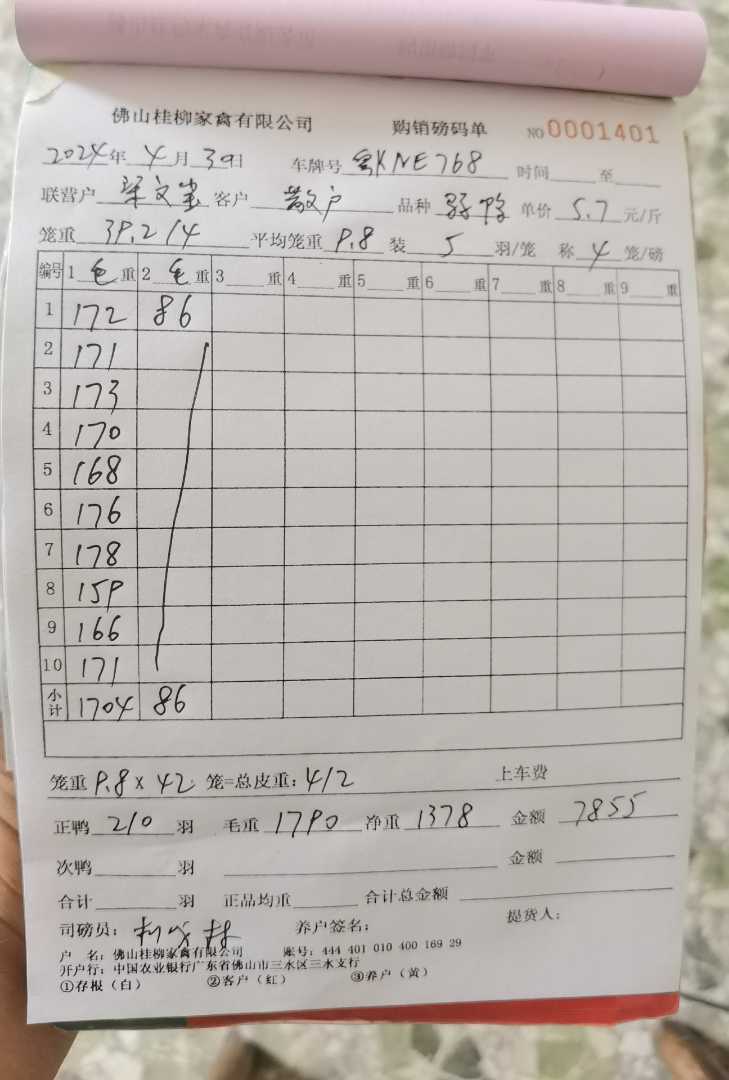 佛山桂柳家禽有限公司 购销磅码单 NO 0001401
2024年 4月 30日 车牌号 粤KNE768 时间 至
联营户 梁文 客户 散户 品种 单价 5.7 元/斤
笼重 39.2/4 平均笼重 9.8 装 5 羽/笼 称 4 笼/磅
编号 1 毛 重 2 毛 重 3 重 4 重 5 重 6 重 7 重 8 重 9 重
1 172 86
2 171
3 173
4 170
5 168
6 176
7 178
8 159
9 166
10 171
小计 1704 86
笼重 9.8 x 42 笼=总皮重: 412 上车费
正鸭 210 羽 毛重 1790 净重 1378 金额 7855
次鸭 羽 金额
合计 羽 正品均重 合计总金额
司磅员: 养户签名: 提货人:
户 名: 佛山桂柳家禽有限公司 账号: 444 401 010 400 169 29
开户行: 中国农业银行广东省佛山市三水区三水支行
①存根(白) ②客户(红) ③养户(黄)